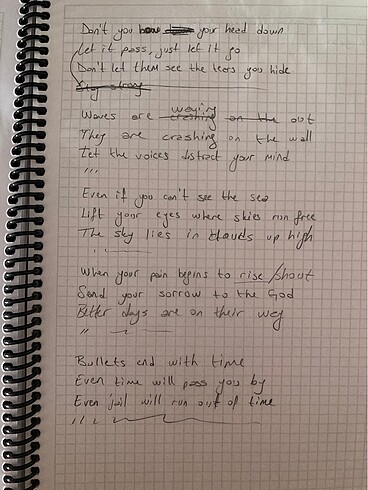 Don't you your head down
Let it pass, just let it go
Don't let them see the tears you hide
Stay strong
Waves are crashing waying on the out
They are crashing on the wall
Let the voices distract your mind
Even if you can't see the sea
Lift your eyes where skies run free
The sky lies in clouds up high
When your pain begins to rise/shout
Send your sorrow to the God
Better days are on their way
Bullets end with time
Even time will pass you by
Even jail will run out of time